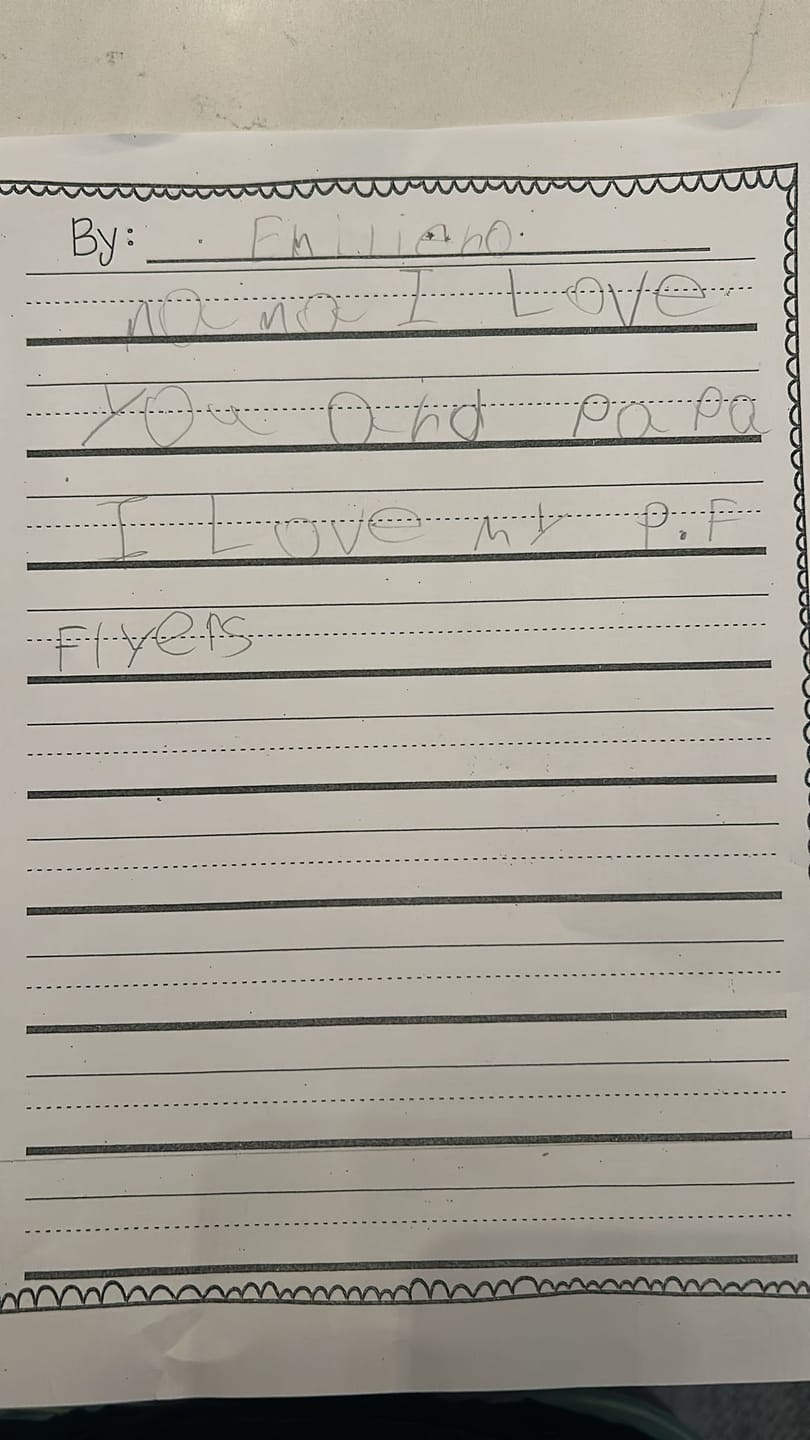 By: Emiliano
nana I Love
you and papa
I Love my P.F
Flyers